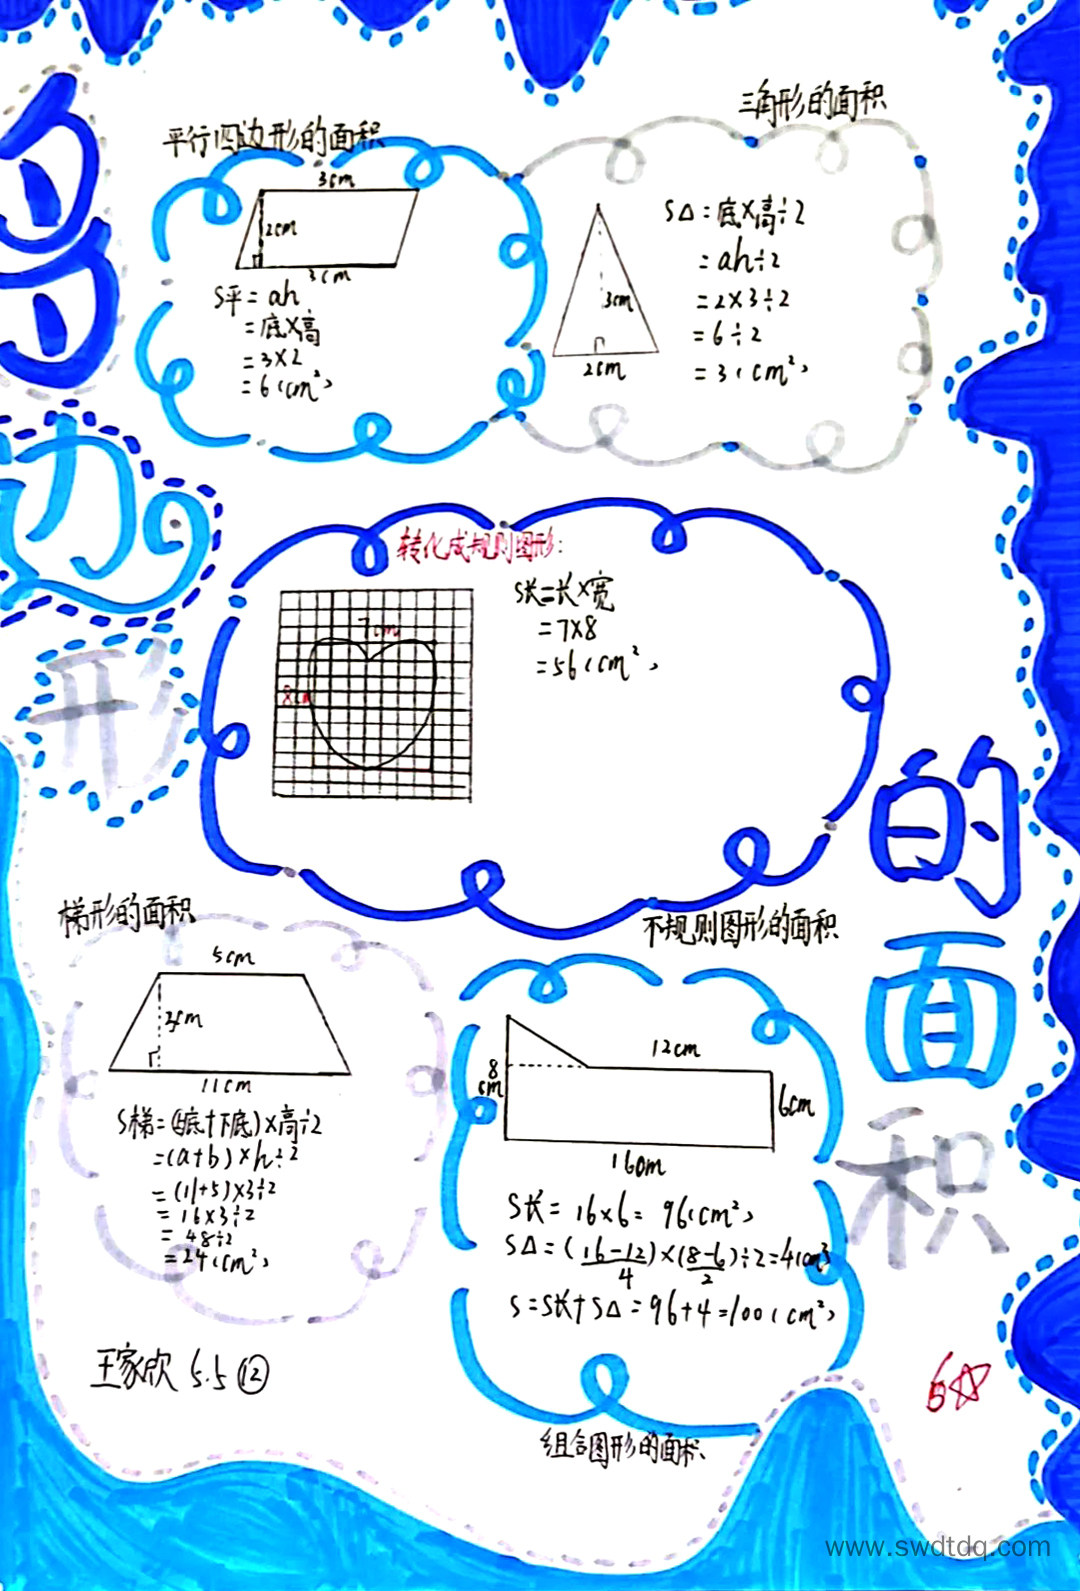 多边形
的面积
平行四边形的面积
3cm
2cm
3cm
S平=ah
=底×高
=3×2
=6(cm²)
三角形的面积
3cm
2cm
S△=底×高÷2
=ah÷2
=2×3÷2
=6÷2
=3(cm²)
转化成规则图形:
7cm
8cm
S长=长×宽
=7×8
=56(cm²)
不规则图形的面积
梯形的面积
5cm
3cm
11cm
S梯=(上底+下底)×高÷2
=(a+b)×h÷2
=(11+5)×3÷2
=16×3÷2
=48÷2
=24(cm²)
12cm
8
cm
6cm
16cm
S长=16×6=96(cm²)
S△=(16-12)×(8-6)÷2=4(cm²)
4 2
S=S长+S△=96+4=100(cm²)
组合图形的面积
王家欣 5.5 ⑫
6☆
www.swdtdq.com